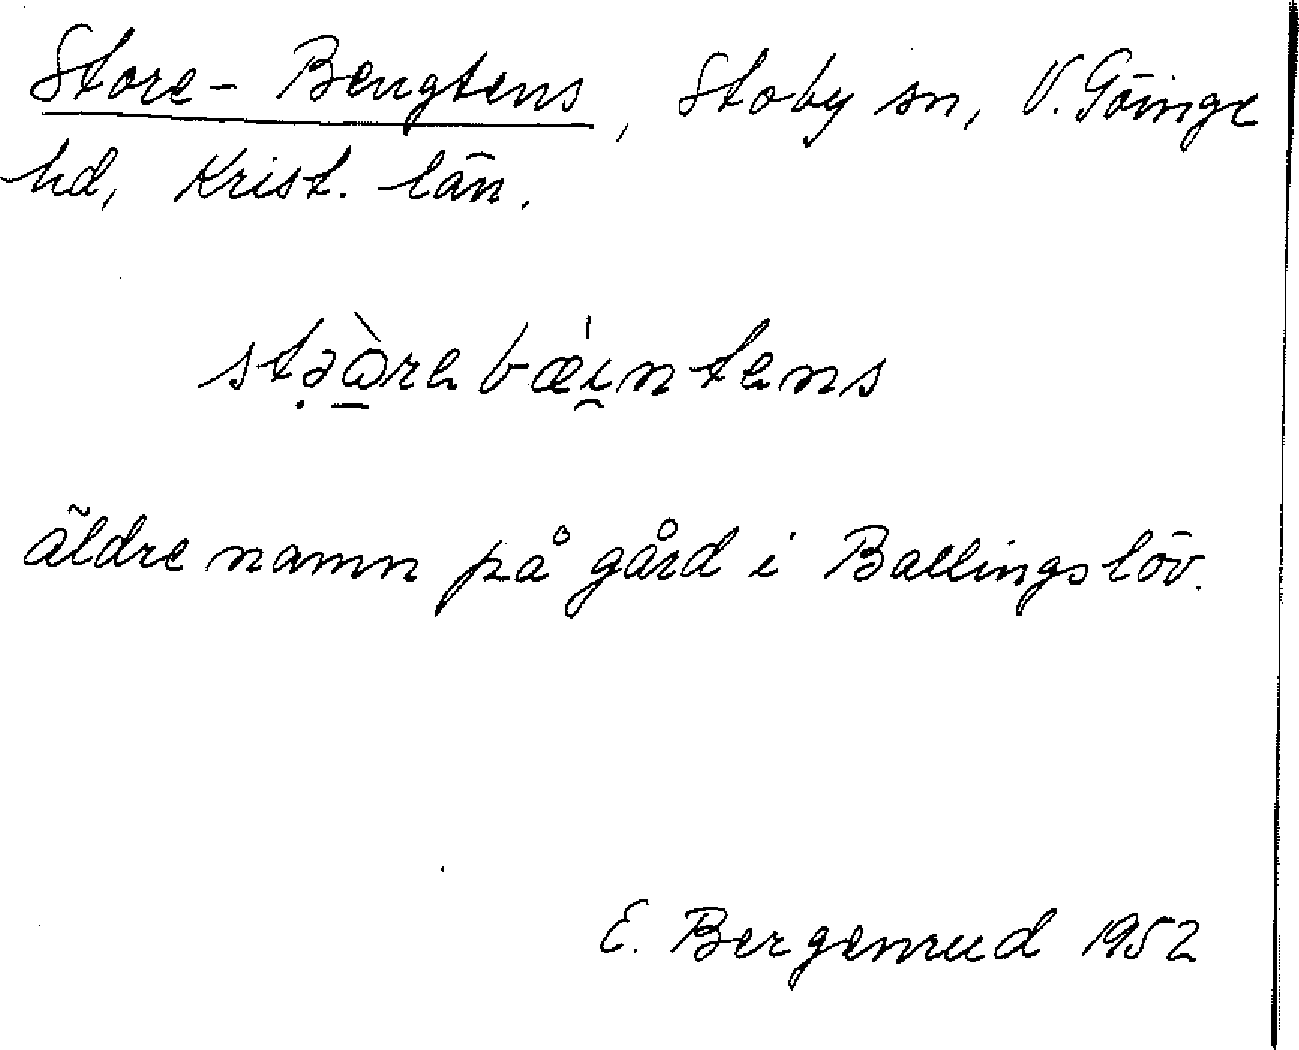 Store-Bengtens, Stoby sn, V. Göinge
hd, Krist. län.
stə̣ò̱rebæ'i̯ntens
äldre namn på gård i Ballingslöv.
E. Bergenrud 1952